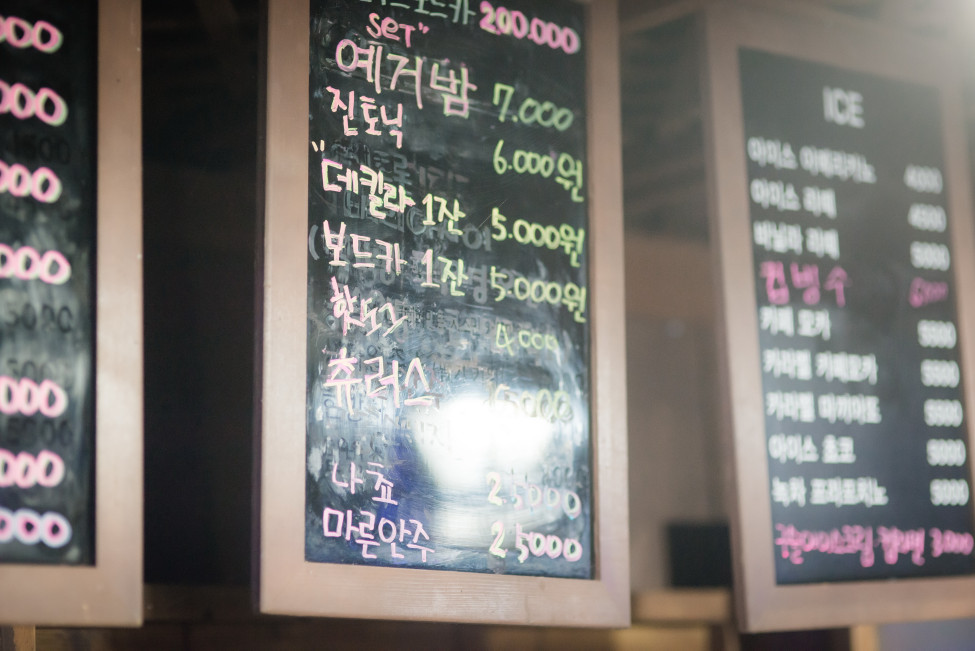 000
000
000
000
000
000
000
보드카 200.000
set"
예거밤 7.000
진토닉 6.000원
"데킬라 1잔 5.000원
보드카 1잔 5.000원
핫도그 4000
츄러스
나쵸 25000
마른안주 25000
ICE
아이스 아메리카노 4000
아이스 라떼 4500
바닐라 라떼 5000
컵빙수 6000
카페 모카 5500
카라멜 카페모카 5500
카라멜 마끼아또 5500
아이스 초코 5000
녹차 프라프치노 5000
3.000